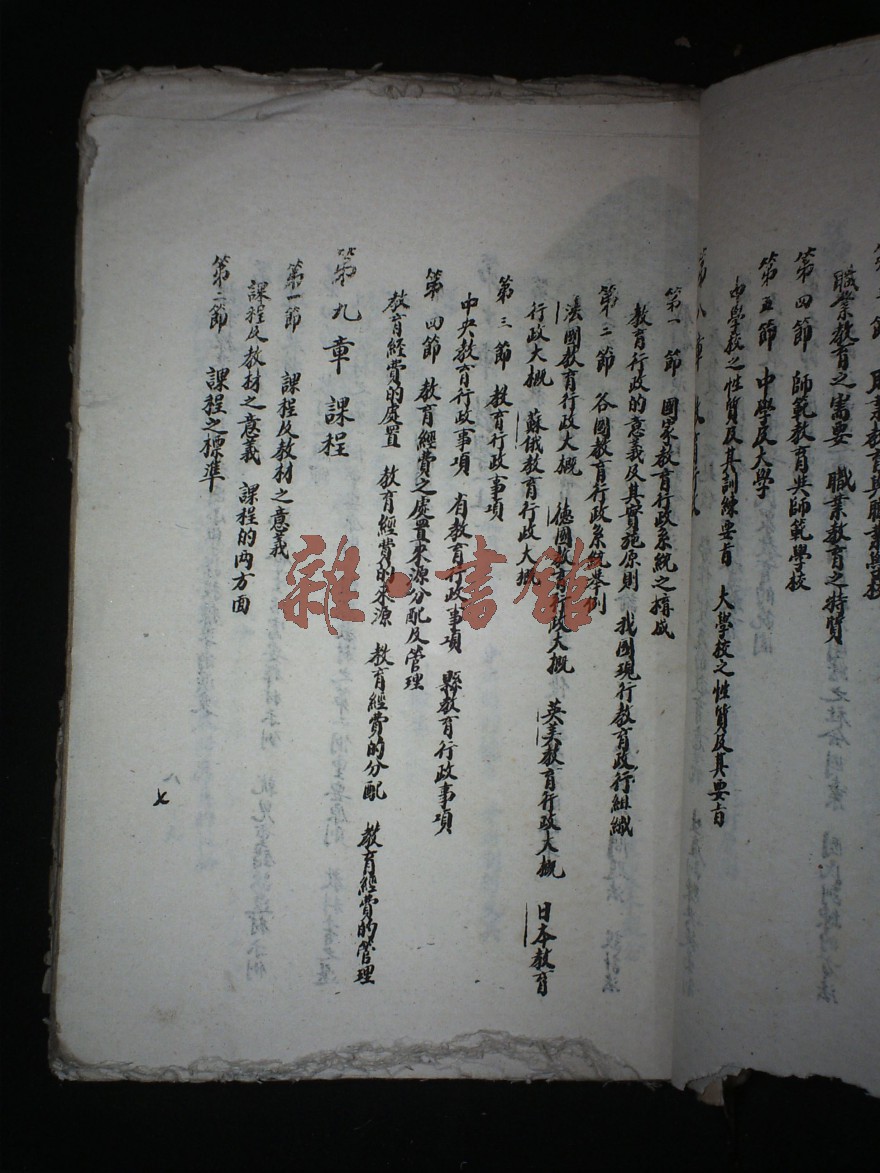 職業教育與職業學校
職業教育之需要 職業教育之特質
第四節 師範教育與師範學校
第五節 中學及大學
中學校之性質及其訓練要旨 大學校之性質及其要旨
第八章 教育行政
第一節 國家教育行政系統之構成
教育行政的意義及其實施原則 我國現行教育政行組織
第二節 各國教育行政系統舉例
法國教育行政大概 德國教育行政大概 英美教育行政大概 日本教育
行政大概 蘇俄教育行政大概
第三節 教育行政事項
中央教育行政事項 省教育行政事項 縣教育行政事項
第四節 教育經費之處置來源分配及管理
教育經費的處置 教育經費的來源 教育經費的分配 教育經費的管理
第九章 課程
第一節 課程及教材之意義
課程及教材之意義 課程的兩方面
第二節 課程之標準
七
雜·書館